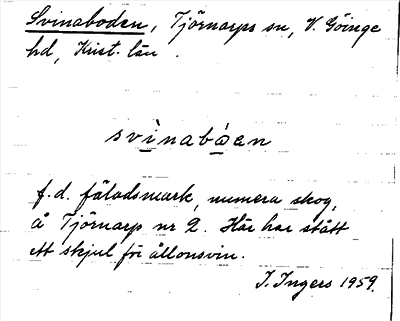 Svinaboden, Tjörnarps sn, V. Göinge
hd, Krist. län.
svìnabåen
f.d. fäladsmark, numera skog,
å Tjörnarp nr 2. Här har stått
ett skjul för ållonsvin.
I. Ingers 1959.